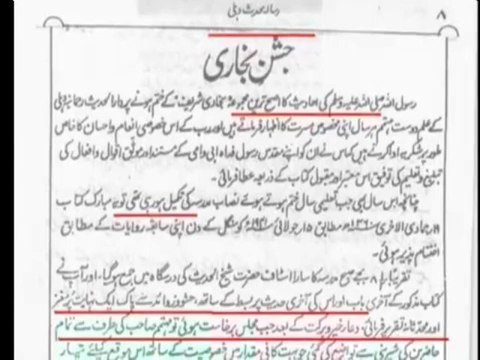 رسالہ محدث دہلی
۸
جشن بخاری
رسول اللہ صلی اللہ علیہ وسلم کی احادیث کا اصح ترین مجموعہ بخاری شریف کے ختم ہونے پر دارالحدیث رحمانیہ دہلی
کے علم دوست مہتمم ہر سال اپنی مخصوص مسرت کا اظہار فرماتے ہیں اور رب کے اس خصوصی انعام و احسان کا خاص
طور پر شکریہ ادا کرتے ہیں کہ اس نے ان کو اپنے مقدس رسول فداہ ابی وامی کے مستند اور موثق اقوال و افعال کی
تبلیغ و تعلیم کی توفیق اس معتبر اور مقبول کتاب کے ذریعہ عطا فرمائی۔
چنانچہ اس سال بھی جب تعلیمی سال ختم ہوتے ہوئے نصاب مدرسہ کی تکمیل ہو رہی تھی تو یہ مبارک کتاب
۱۹ جمادی الاخری ۱۳۶۰ھ مطابق ۱۵ جولائی ۱۹۴۱ء کو منگل کے دن اپنی سابقہ روایات کے مطابق
اختتام پذیر ہوئی۔
تقریبًا ۸ بجے صبح مدرسہ کا سارا اسٹاف حضرت شیخ الحدیث کی درسگاہ میں جمع ہوگیا۔ اور آپ نے
کتاب مذکور کے آخری باب اور اس کی آخری حدیث پر بسط کے ساتھ، حشو و زوائد سے پاک ایک نہایت پر مغز
اور محدثانہ تقریر فرمائی، دعاء خیر و برکت کے بعد جب مجلس برخاست ہوئی تو مہتمم صاحب کی طرف سے تمام
حاضرین کی شیرینی سے تواضع کی گئی جو بہت کافی مقدار میں خصوصیت کے ساتھ اس موقع کیلئے تیار